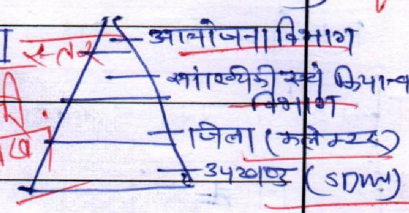 I स्तर
आयोजना विभाग
सांख्यिकी एवं क्रियान्व
विभाग
जिला (कलेक्टर)
उपखण्ड (SDM)